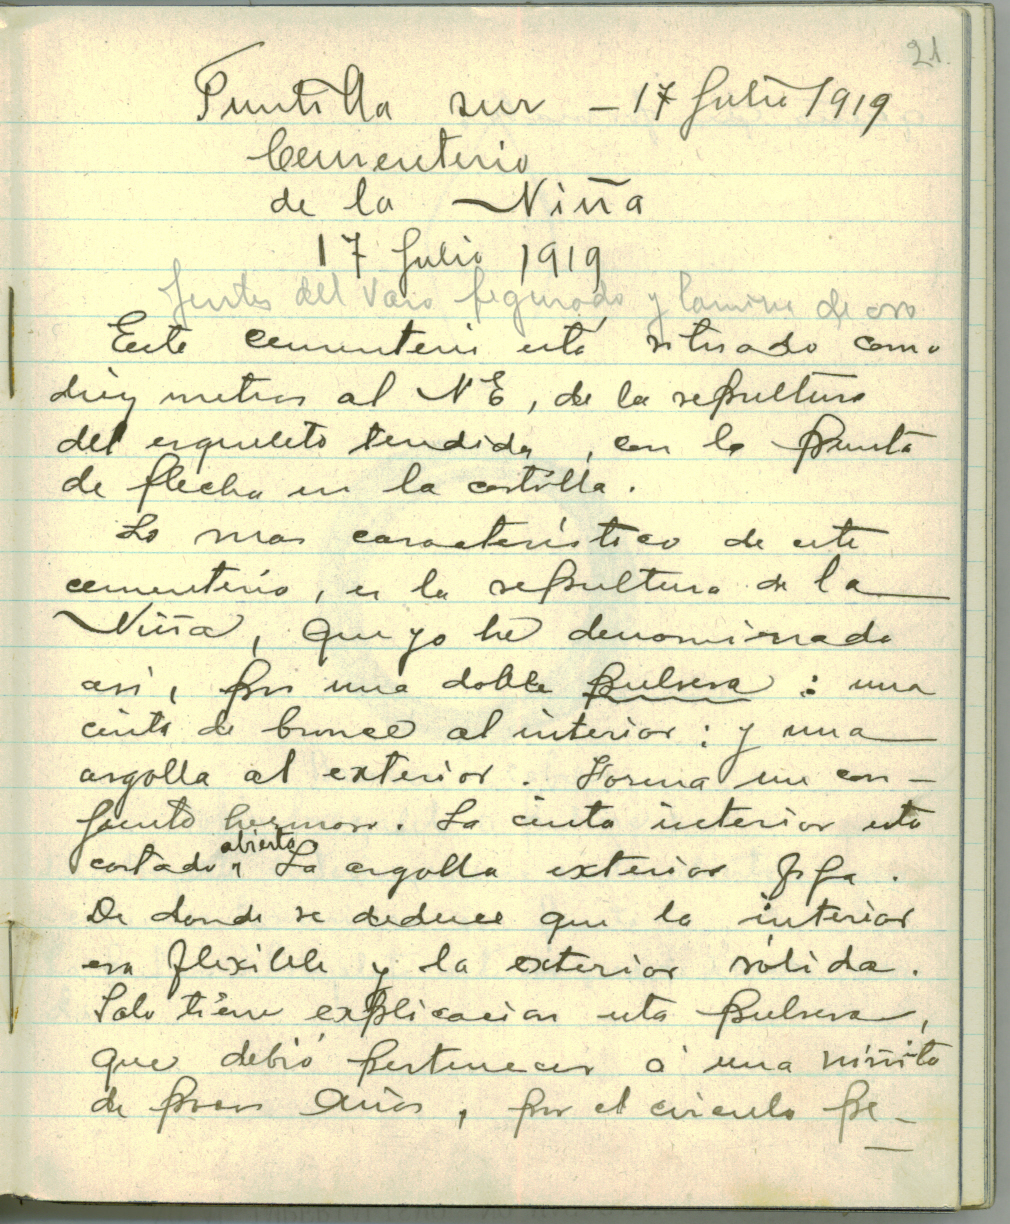 21.
Puntilla sur - 17 Julio 1919
Cementerio
de la Niña
17 Julio 1919
del Vaso figurado y lamina de oro
Este cementerio está situado como
diez metros al NE, de la sepultura
del esqueleto tendido, con la punta
de flecha en la costilla.
Lo mas característico de este
cementerio, es la sepultura de la
Niña, que yo he denominado
asi, por una doble pulsera : una
cinta de bronce al interior : y una
argolla al exterior. Forma un con-
junto hermoso. La cinta interior esta
abierta
cortada La argolla exterior fija.
De donde se deduce que la interior
era flexible y la exterior sólida.
Solo tiene explicacion esta pulsera,
que debió pertenecer á una niñita
de pocos años, por el circulo pe-